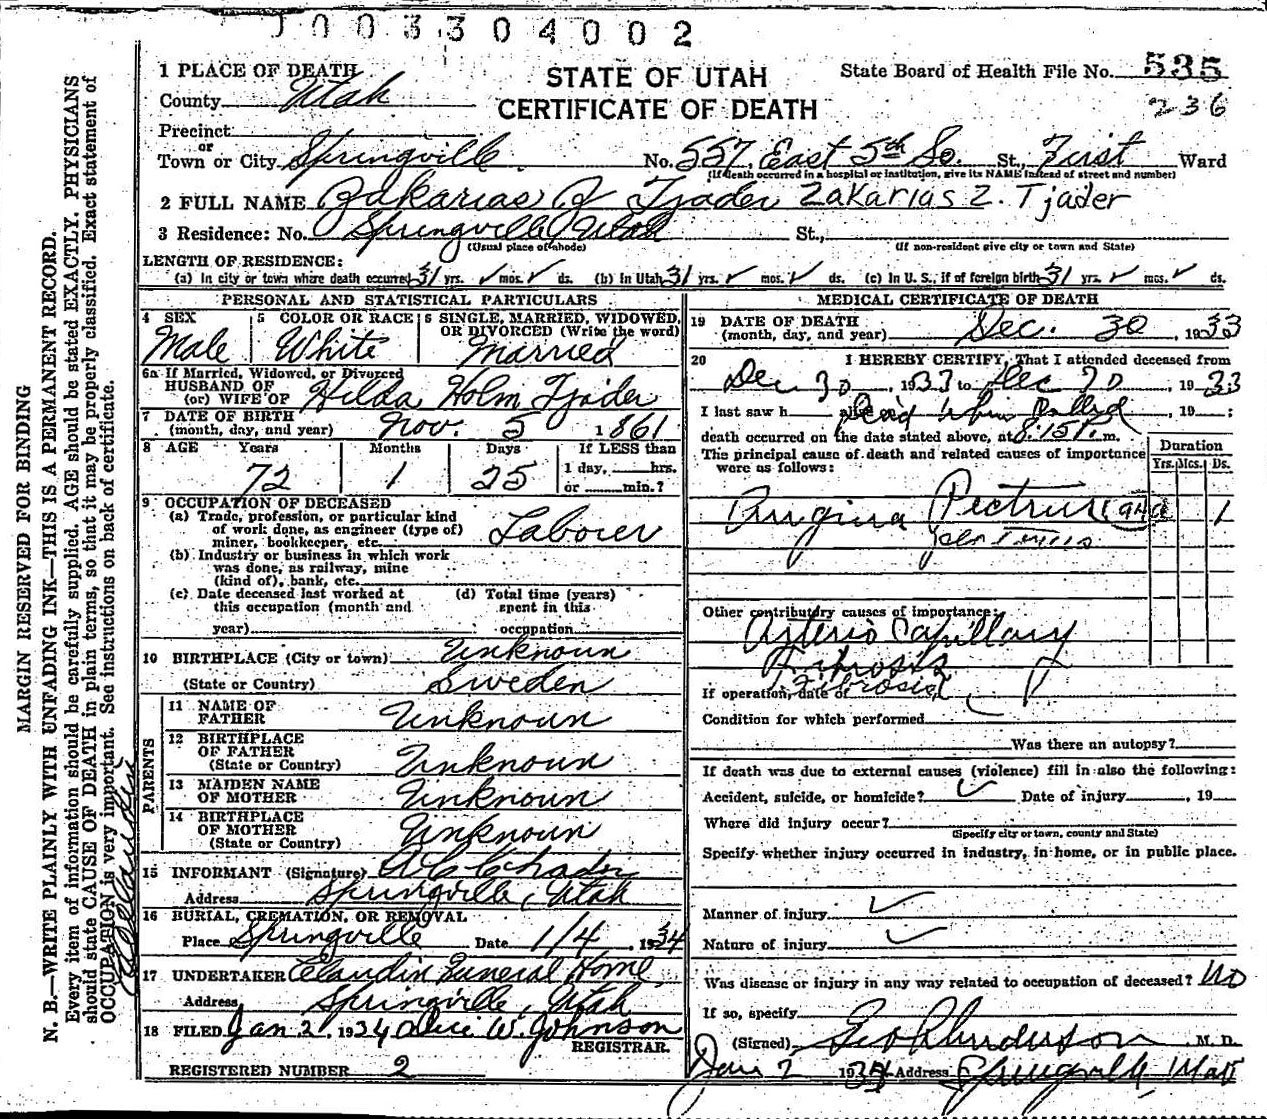 003304002
1 PLACE OF DEATH
STATE OF UTAH
State Board of Health File No. 535
County Utah
CERTIFICATE OF DEATH
236
Precinct
or
Town or City Springville No. 557, East 5th So. St., First Ward
(If death occurred in a hospital or institution, give its NAME instead of street and number)
2 FULL NAME Zakarias Z Tjader Zakarias Z. Tjader
3 Residence: No. Springville Utah St.,
(Usual place of abode) (If non-resident give city or town and State)
LENGTH OF RESIDENCE:
(a) In city or town where death occurred 31 yrs. ✓ mos. ✓ ds. (b) In Utah 31 yrs. ✓ mos. ✓ ds. (c) In U. S., if of foreign birth 31 yrs. ✓ mos. ✓ ds.
PERSONAL AND STATISTICAL PARTICULARS
4 SEX
Male
5 COLOR OR RACE
White
6 SINGLE, MARRIED, WIDOWED, OR DIVORCED (Write the word)
Married
6a If Married, Widowed, or Divorced
HUSBAND OF
(or) WIFE OF Hilda Holm Tjader
7 DATE OF BIRTH
(month, day, and year) Nov. 5 1861
8 AGE Years Months Days If LESS than
72 1 25 1 day, hrs.
or min.?
9 OCCUPATION OF DECEASED
(a) Trade, profession, or particular kind
of work done, as engineer (type of)
miner, bookkeeper, etc. Laborer
(b) Industry or business in which work
was done, as railway, mine
(kind of), bank, etc.
(c) Date deceased last worked at
this occupation (month and
year)
(d) Total time (years)
spent in this
occupation
10 BIRTHPLACE (City or town) Unknoun
(State or Country) Sweden
PARENTS
11 NAME OF
FATHER Unknoun
12 BIRTHPLACE
OF FATHER
(State or Country) Unknoun
13 MAIDEN NAME
OF MOTHER Unknoun
14 BIRTHPLACE
OF MOTHER
(State or Country) Unknoun
15 INFORMANT (Signature)
Address Springville, Utah
16 BURIAL, CREMATION, OR REMOVAL
Place Springville Date 1/4, 1934
17 UNDERTAKER Claudin Funeral Home
Address Springville, Utah
18 FILED Jan 2 1934 Alice W. Johnson
REGISTRAR.
REGISTERED NUMBER 2
MEDICAL CERTIFICATE OF DEATH
19 DATE OF DEATH
(month, day, and year) Dec. 30, 1933
20 I HEREBY CERTIFY, That I attended deceased from
Dec 30, 1933 to Dec 30, 1933
I last saw h alive Dead when Called, 19 ;
death occurred on the date stated above, at 8:15P.m.
The principal cause of death and related causes of importance
were as follows:
Duration
Yrs. Mos. Ds.
Angina Pectoris 1
Other contributory causes of importance:
Arterio Capillary
Fibrosis
If operation, date of
Condition for which performed
Was there an autopsy?
If death was due to external causes (violence) fill in also the following:
Accident, suicide, or homicide? ✓ Date of injury , 19
Where did injury occur?
(Specify city or town, county and State)
Specify whether injury occurred in industry, in home, or in public place.
Manner of injury ✓
Nature of injury ✓
Was disease or injury in any way related to occupation of deceased? No
If so, specify
(Signed) Geo Anderson M. D.
Jan 2 1934 Address Springville, Utah
MARGIN RESERVED FOR BINDING
N. B.—WRITE PLAINLY WITH UNFADING INK—THIS IS A PERMANENT RECORD.
Every item of information should be carefully supplied. AGE should be stated EXACTLY. PHYSICIANS
should state CAUSE OF DEATH in plain terms, so that it may be properly classified. Exact statement of
OCCUPATION is very important. See instructions on back of certificate.